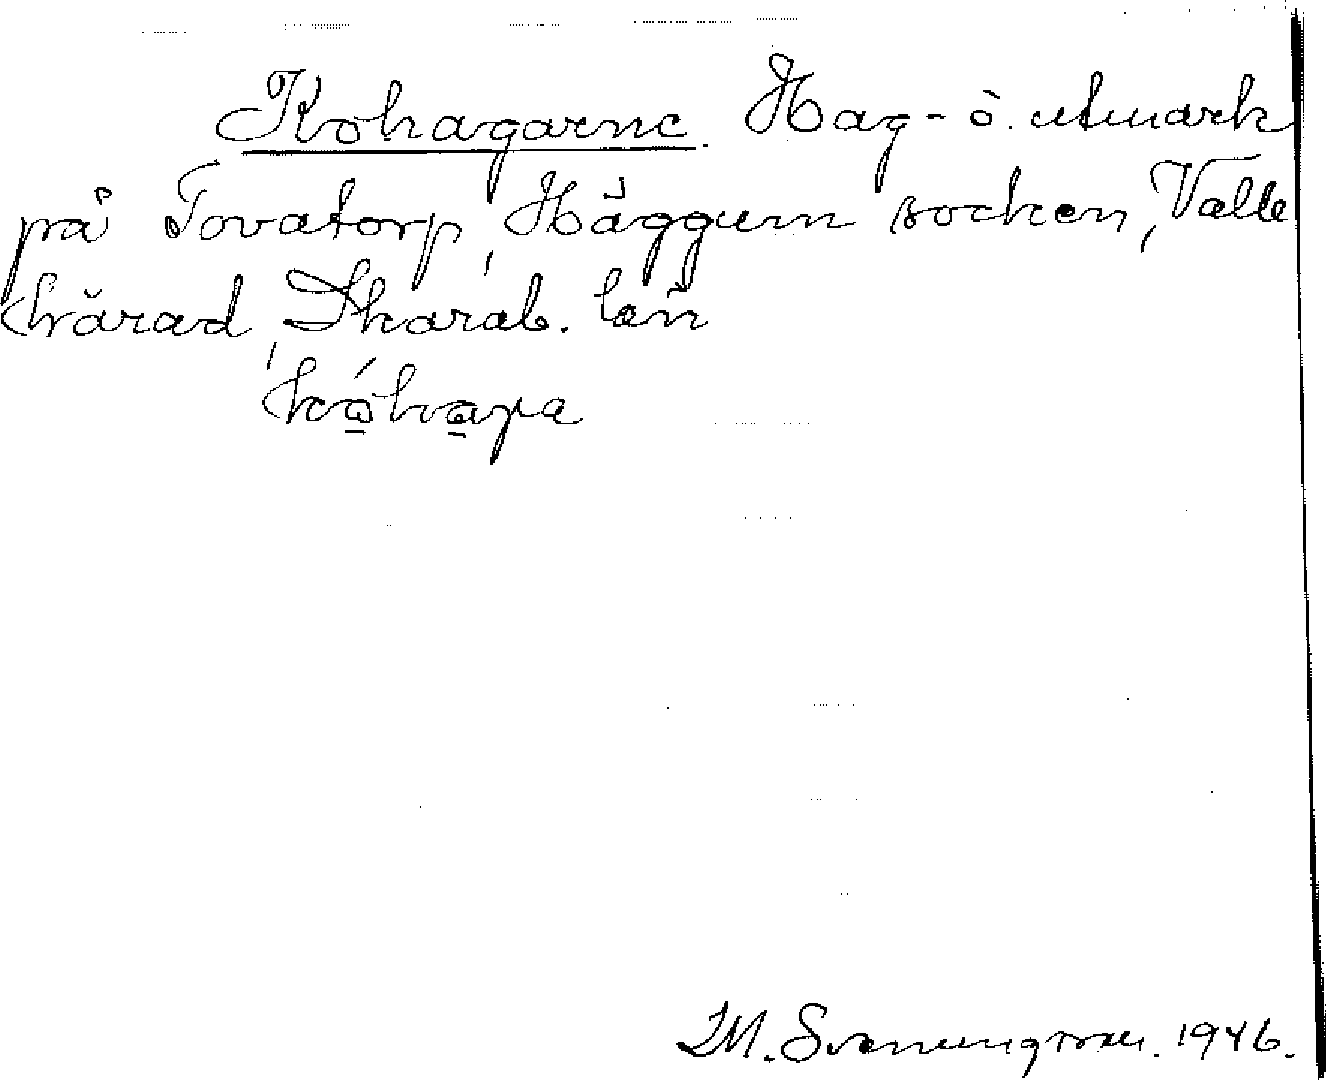 Kohagarne. Hag- o. utmark
på Tovatorp, Häggum socken, Valle
härad, Skarab. län
M. Svenungsson. 1946.